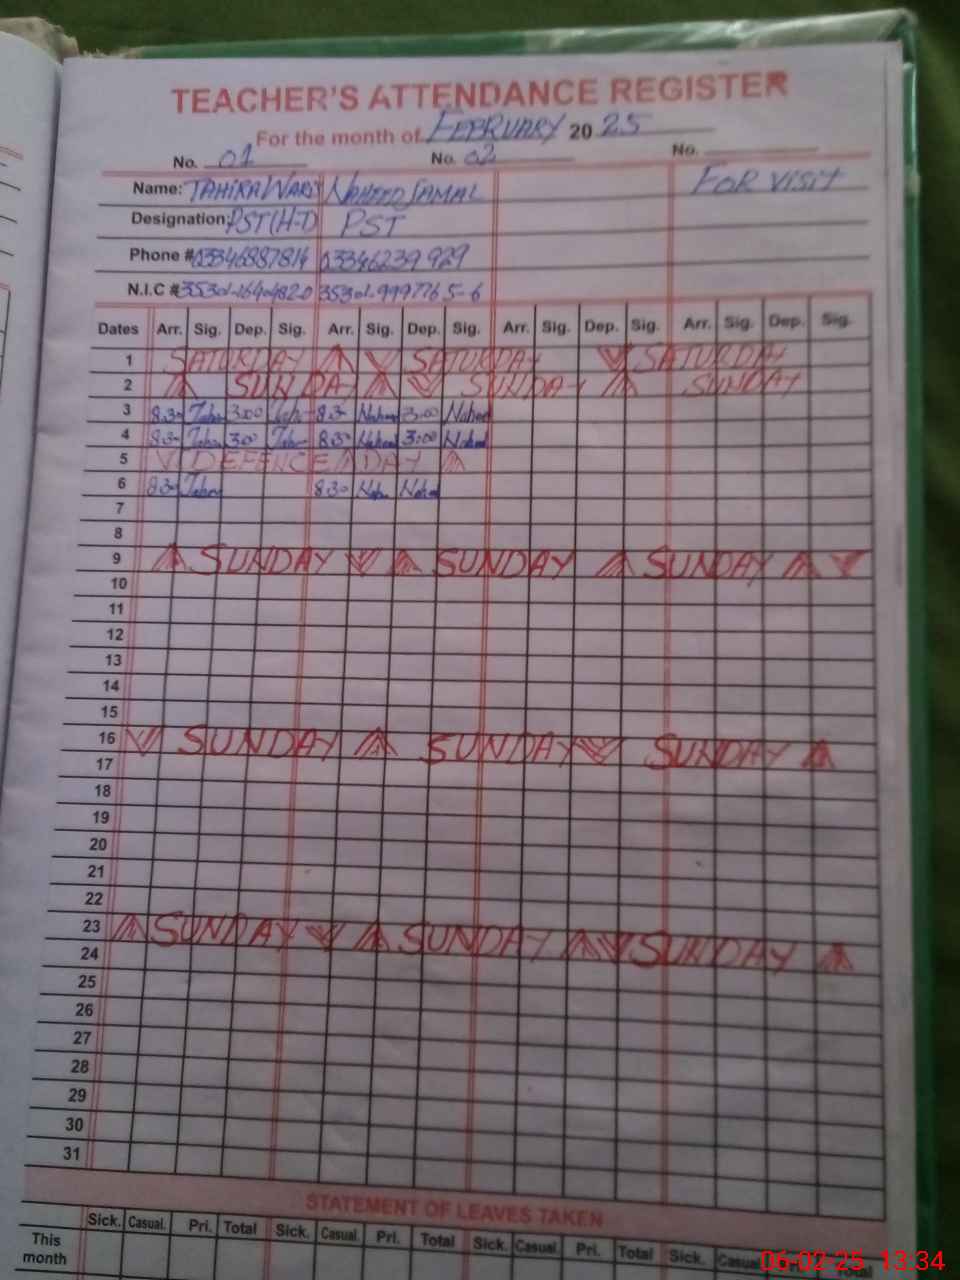 TEACHER'S ATTENDANCE REGISTER
For the month of FEBRUARY 2025
No. 01 No. 02 No.
Name: TAHIRA WARIS NAHEED JAMAL FOR VISIT
Designation: PST(H-T) PST
Phone # 03346887814 03346239929
N.I.C # 35301-9997765-6
Dates Arr. Sig. Dep. Sig. Arr. Sig. Dep. Sig. Arr. Sig. Dep. Sig. Arr. Sig. Dep. Sig.
1 SATURDAY SATURDAY SATURDAY
2 SUNDAY SUNDAY SUNDAY
3 8.30 3.00 8.30 3.00
4 8.30 3.00 8.30 3.00
5 DEFENCE DAY
6 8.30 8.30
7
8
9 SUNDAY SUNDAY SUNDAY
10
11
12
13
14
15
16 SUNDAY SUNDAY SUNDAY
17
18
19
20
21
22
23 SUNDAY SUNDAY SUNDAY
24
25
26
27
28
29
30
31
STATEMENT OF LEAVES TAKEN
Sick. Casual. Pri. Total Sick. Casual. Pri. Total Sick. Casual. Pri. Total Sick.
This month
06-02-25 13:34